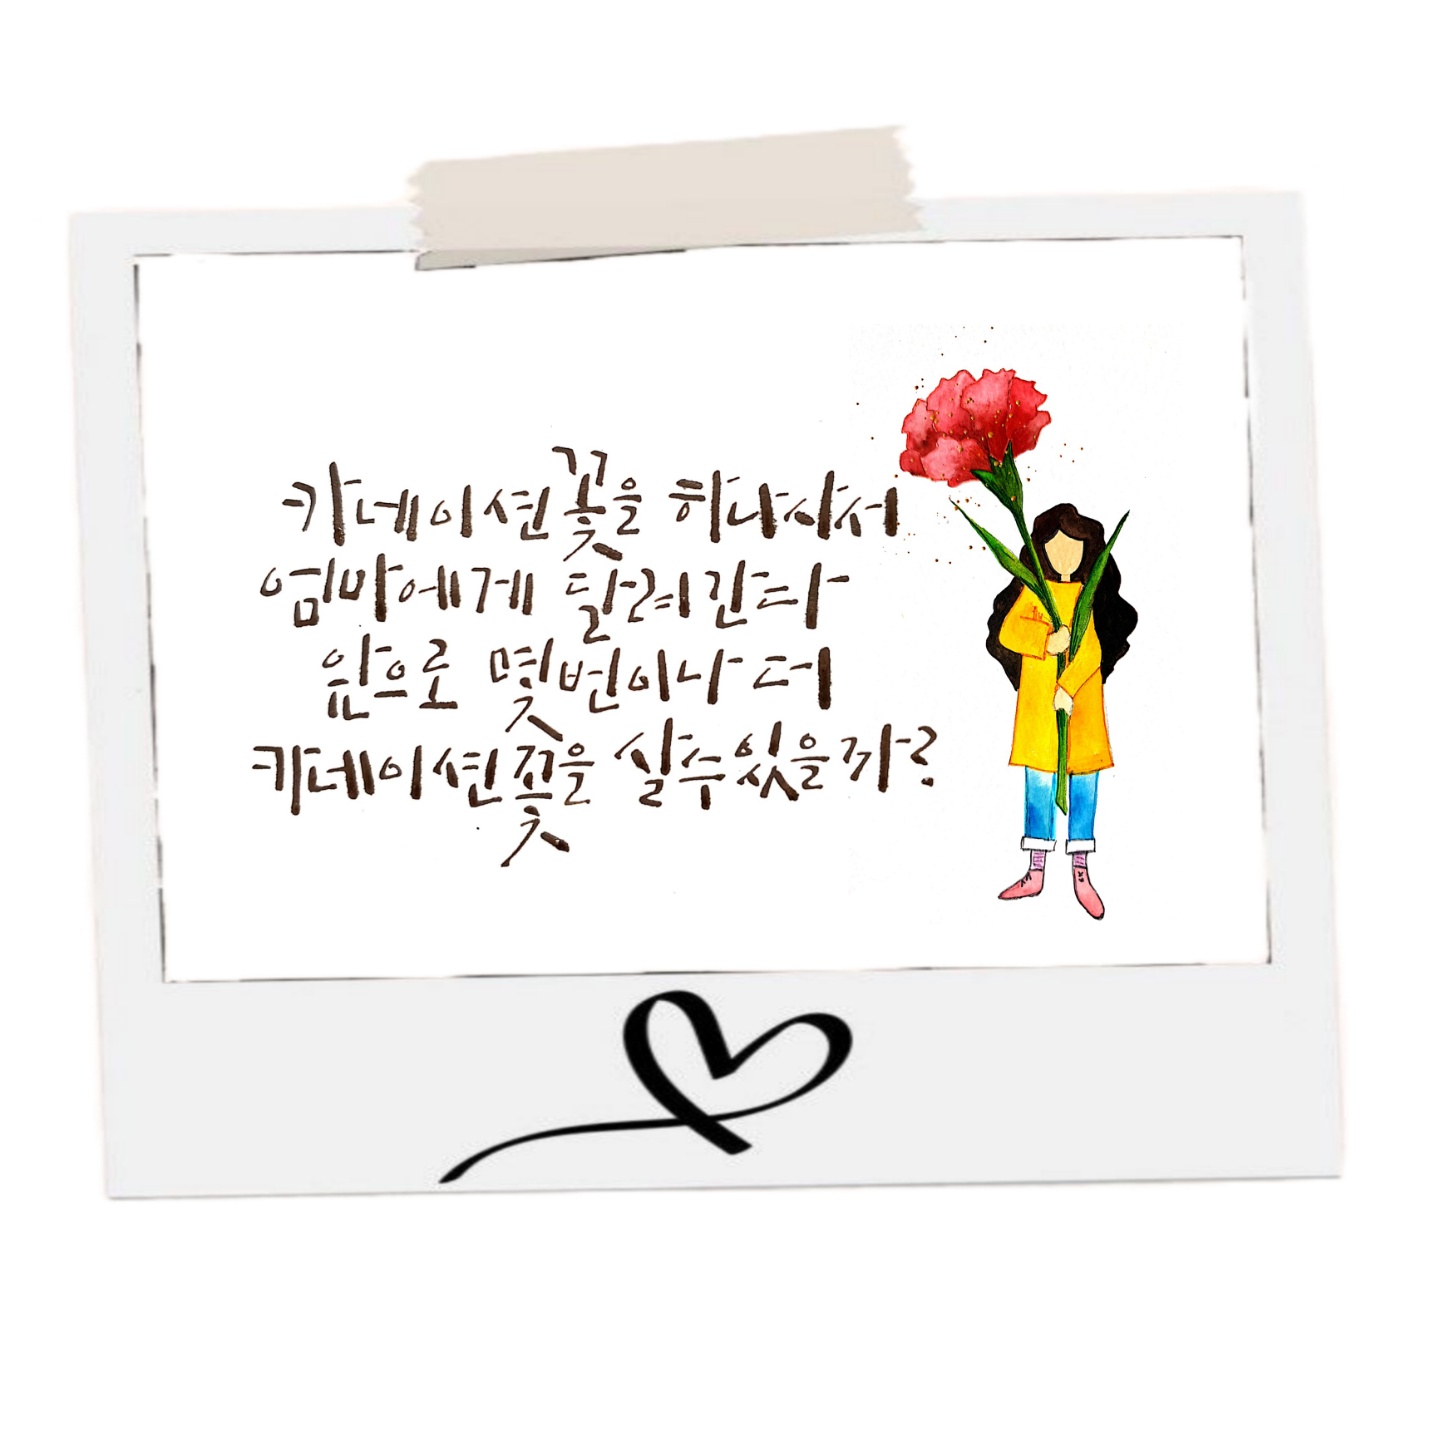 카네이션꽃을 하나사서
엄마에게 달려간다
앞으로 몇번이나 더
카네이션꽃을 살수있을까?